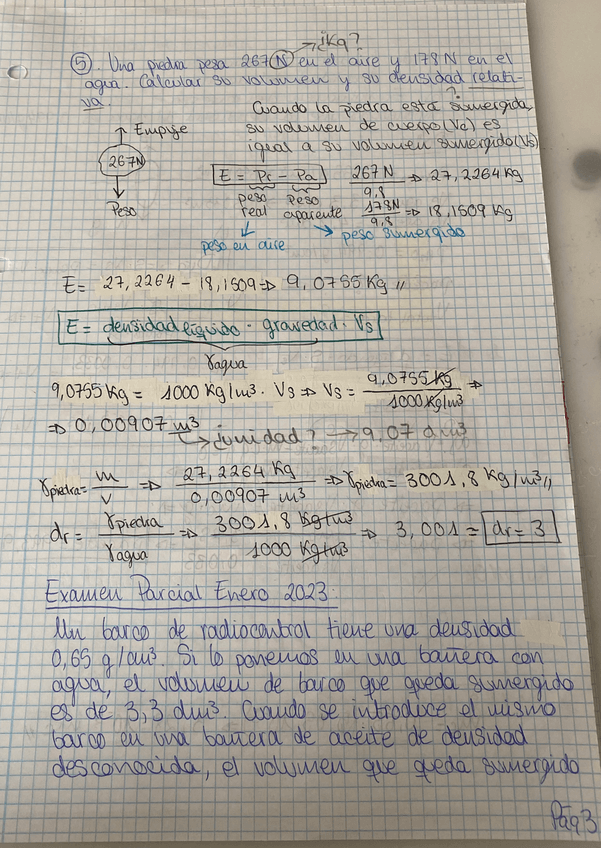 ¿Kg?
⑤. Una piedra pesa 267 N en el aire y 178 N en el
agua. Calcular su volumen y su densidad relati-
va.
?
Cuando la piedra está sumergida,
su volumen de cuerpo (Vc) es
igual a su volumen sumergido (Vs)
Empuje
267N
Peso
E = Pr - Pa
peso real
peso aparente
peso en aire
peso sumergido
267N / 9,8 ⇒ 27,2264 Kg
178N / 9,8 ⇒ 18,1509 Kg
E = 27,2264 - 18,1509 ⇒ 9,0755 Kg //
E = densidad líquido · gravedad · Vs
γagua
9,0755 Kg = 1000 Kg/m³ · Vs ⇒ Vs = 9,0755 Kg / 1000 Kg/m³ ⇒
⇒ 0,00907 m³
↳ ¿unidad? → 9,07 dm³
γpiedra = m / V ⇒ 27,2264 Kg / 0,00907 m³ ⇒ γpiedra = 3001,8 Kg/m³ //
dr = γpiedra / γagua ⇒ 3001,8 Kg/m³ / 1000 Kg/m³ ⇒ 3,001 = dr = 3
Examen Parcial Enero 2023:
Un barco de radiocontrol tiene una densidad
0,65 g/cm³. Si lo ponemos en una bañera con
agua, el volumen de barco que queda sumergido
es de 3,3 dm³. Cuando se introduce el mismo
barco en una bañera de aceite de densidad
desconocida, el volumen que queda sumergido
Pág 3